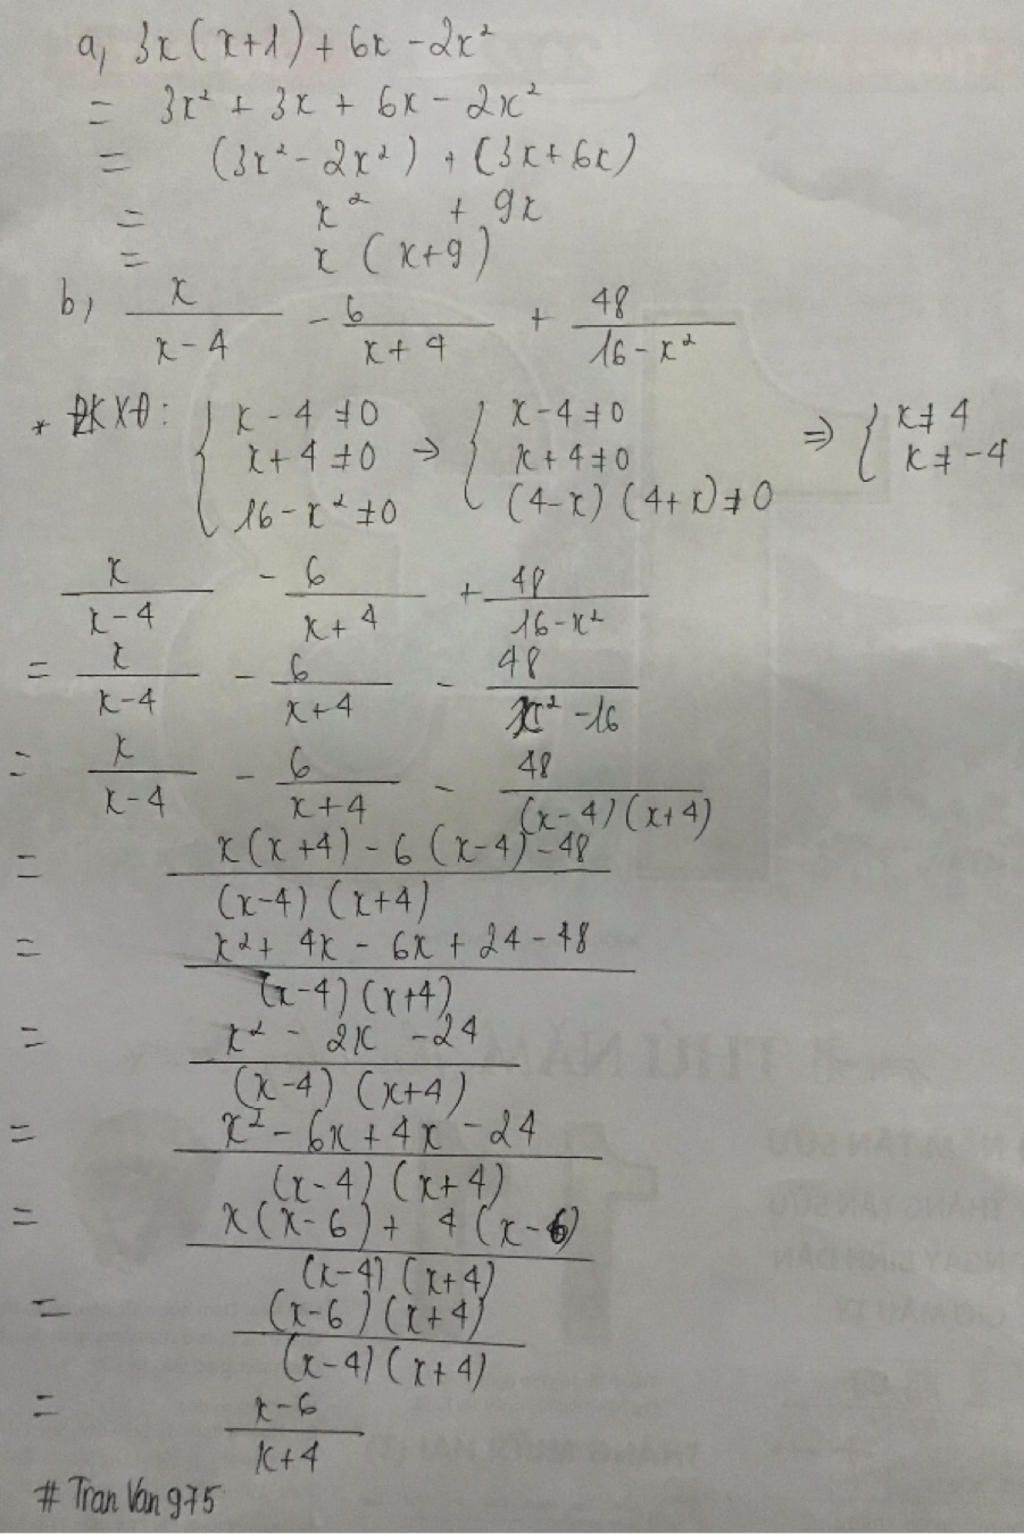 a, 3x(x+1) + 6x - 2x²
= 3x² + 3x + 6x - 2x²
= (3x² - 2x²) + (3x + 6x)
= x² + 9x
= x (x+9)
b, x/(x-4) - 6/(x+4) + 48/(16-x²)
* ĐKXĐ: { x-4 ≠ 0 ; x+4 ≠ 0 ; 16-x² ≠ 0 → { x-4 ≠ 0 ; x+4 ≠ 0 ; (4-x)(4+x) ≠ 0 ⇒ { x ≠ 4 ; x ≠ -4
x/(x-4) - 6/(x+4) + 48/(16-x²)
= x/(x-4) - 6/(x+4) - 48/(x²-16)
= x/(x-4) - 6/(x+4) - 48/((x-4)(x+4))
= (x(x+4) - 6(x-4) - 48)/((x-4)(x+4))
= (x² + 4x - 6x + 24 - 48)/((x-4)(x+4))
= (x² - 2x - 24)/((x-4)(x+4))
= (x² - 6x + 4x - 24)/((x-4)(x+4))
= (x(x-6) + 4(x-6))/((x-4)(x+4))
= ((x-6)(x+4))/((x-4)(x+4))
= (x-6)/(x+4)
# Tran Van 975
THỨ NĂM
NĂM TÂN SỬU
THÁNG TÂN SỬU
NGÀY ĐINH DẬN